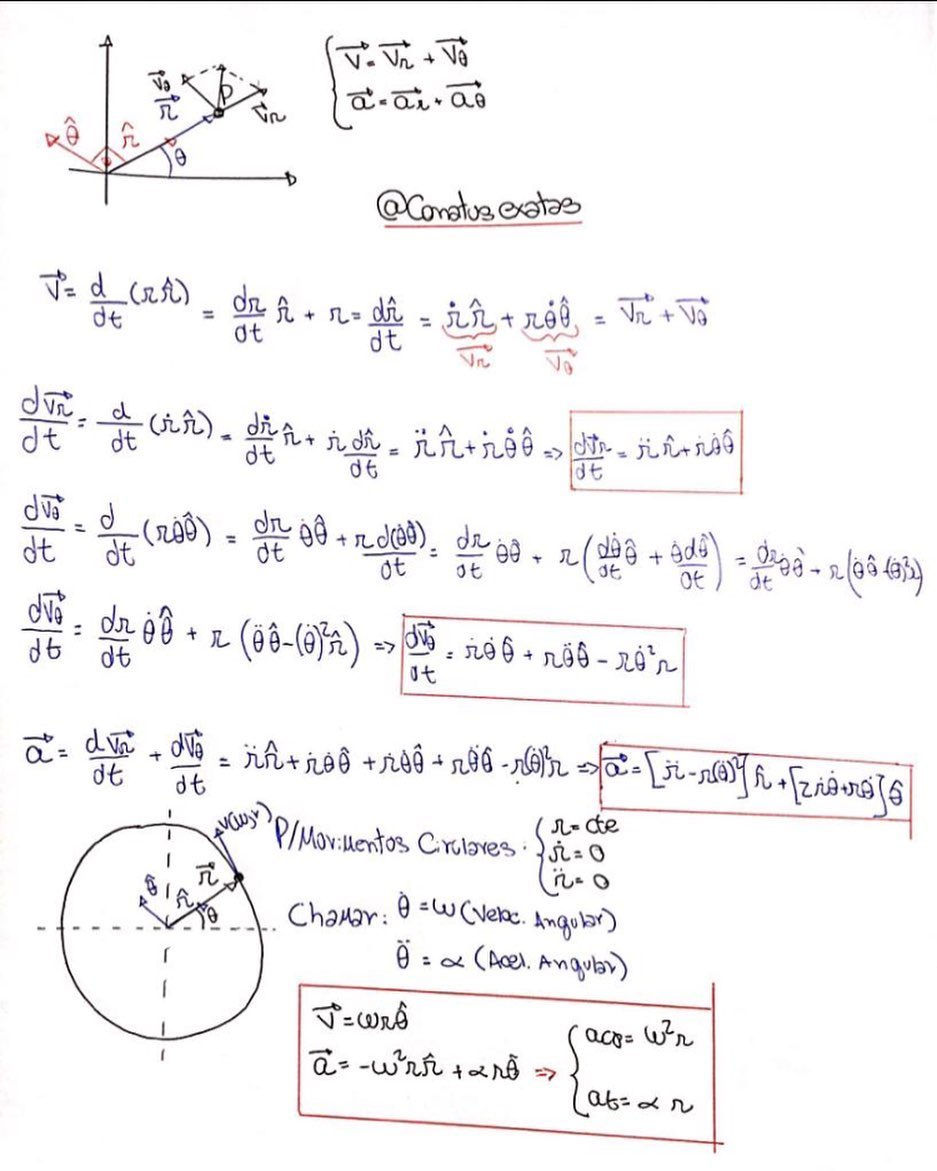 V⃗ = V⃗r + V⃗θ
a⃗ = a⃗r + a⃗θ
V⃗θ r⃗ P V⃗r
θ̂ r̂ θ
@Conatus exatas
V⃗ = d/dt (r r̂) = dr/dt r̂ + r = dr̂/dt = ṙ r̂ + r θ̇ θ̂ = V⃗r + V⃗θ
V⃗r V⃗θ
dV⃗r/dt = d/dt (ṙ r̂) = dṙ/dt r̂ + ṙ dr̂/dt = r̈ r̂ + ṙ θ̇ θ̂ => dV⃗r/dt = r̈ r̂ + ṙ θ̇ θ̂
dV⃗θ/dt = d/dt (r θ̇ θ̂) = dr/dt θ̇ θ̂ + r d(θ̇ θ̂)/dt = dr/dt θ̇ θ̂ + r (dθ̇/dt θ̂ + θ̇ dθ̂/dt) = dr/dt θ̇ θ̂ + r (θ̈ θ̂ - (θ̇)² r̂)
dV⃗θ/dt = dr/dt θ̇ θ̂ + r (θ̈ θ̂ - (θ̇)² r̂) => dV⃗θ/dt = ṙ θ̇ θ̂ + r θ̈ θ̂ - r θ̇² r
a⃗ = dV⃗r/dt + dV⃗θ/dt = r̈ r̂ + ṙ θ̇ θ̂ + ṙ θ̇ θ̂ + r θ̈ θ̂ - r(θ̇)² r => a⃗ = [r̈ - r(θ̇)²] r̂ + [2ṙ θ̇ + r θ̈] θ̂
P/Movimentos Circulares:
r = cte
ṙ = 0
r̈ = 0
θ̂ r̂ r⃗ θ
Chamar: θ̇ = ω (Veloc. Angular)
θ̈ = α (Acel. Angular)
V⃗ = ω r θ̂
a⃗ = -ω² r r̂ + α r θ̂ =>
acp = ω² r
at = α r